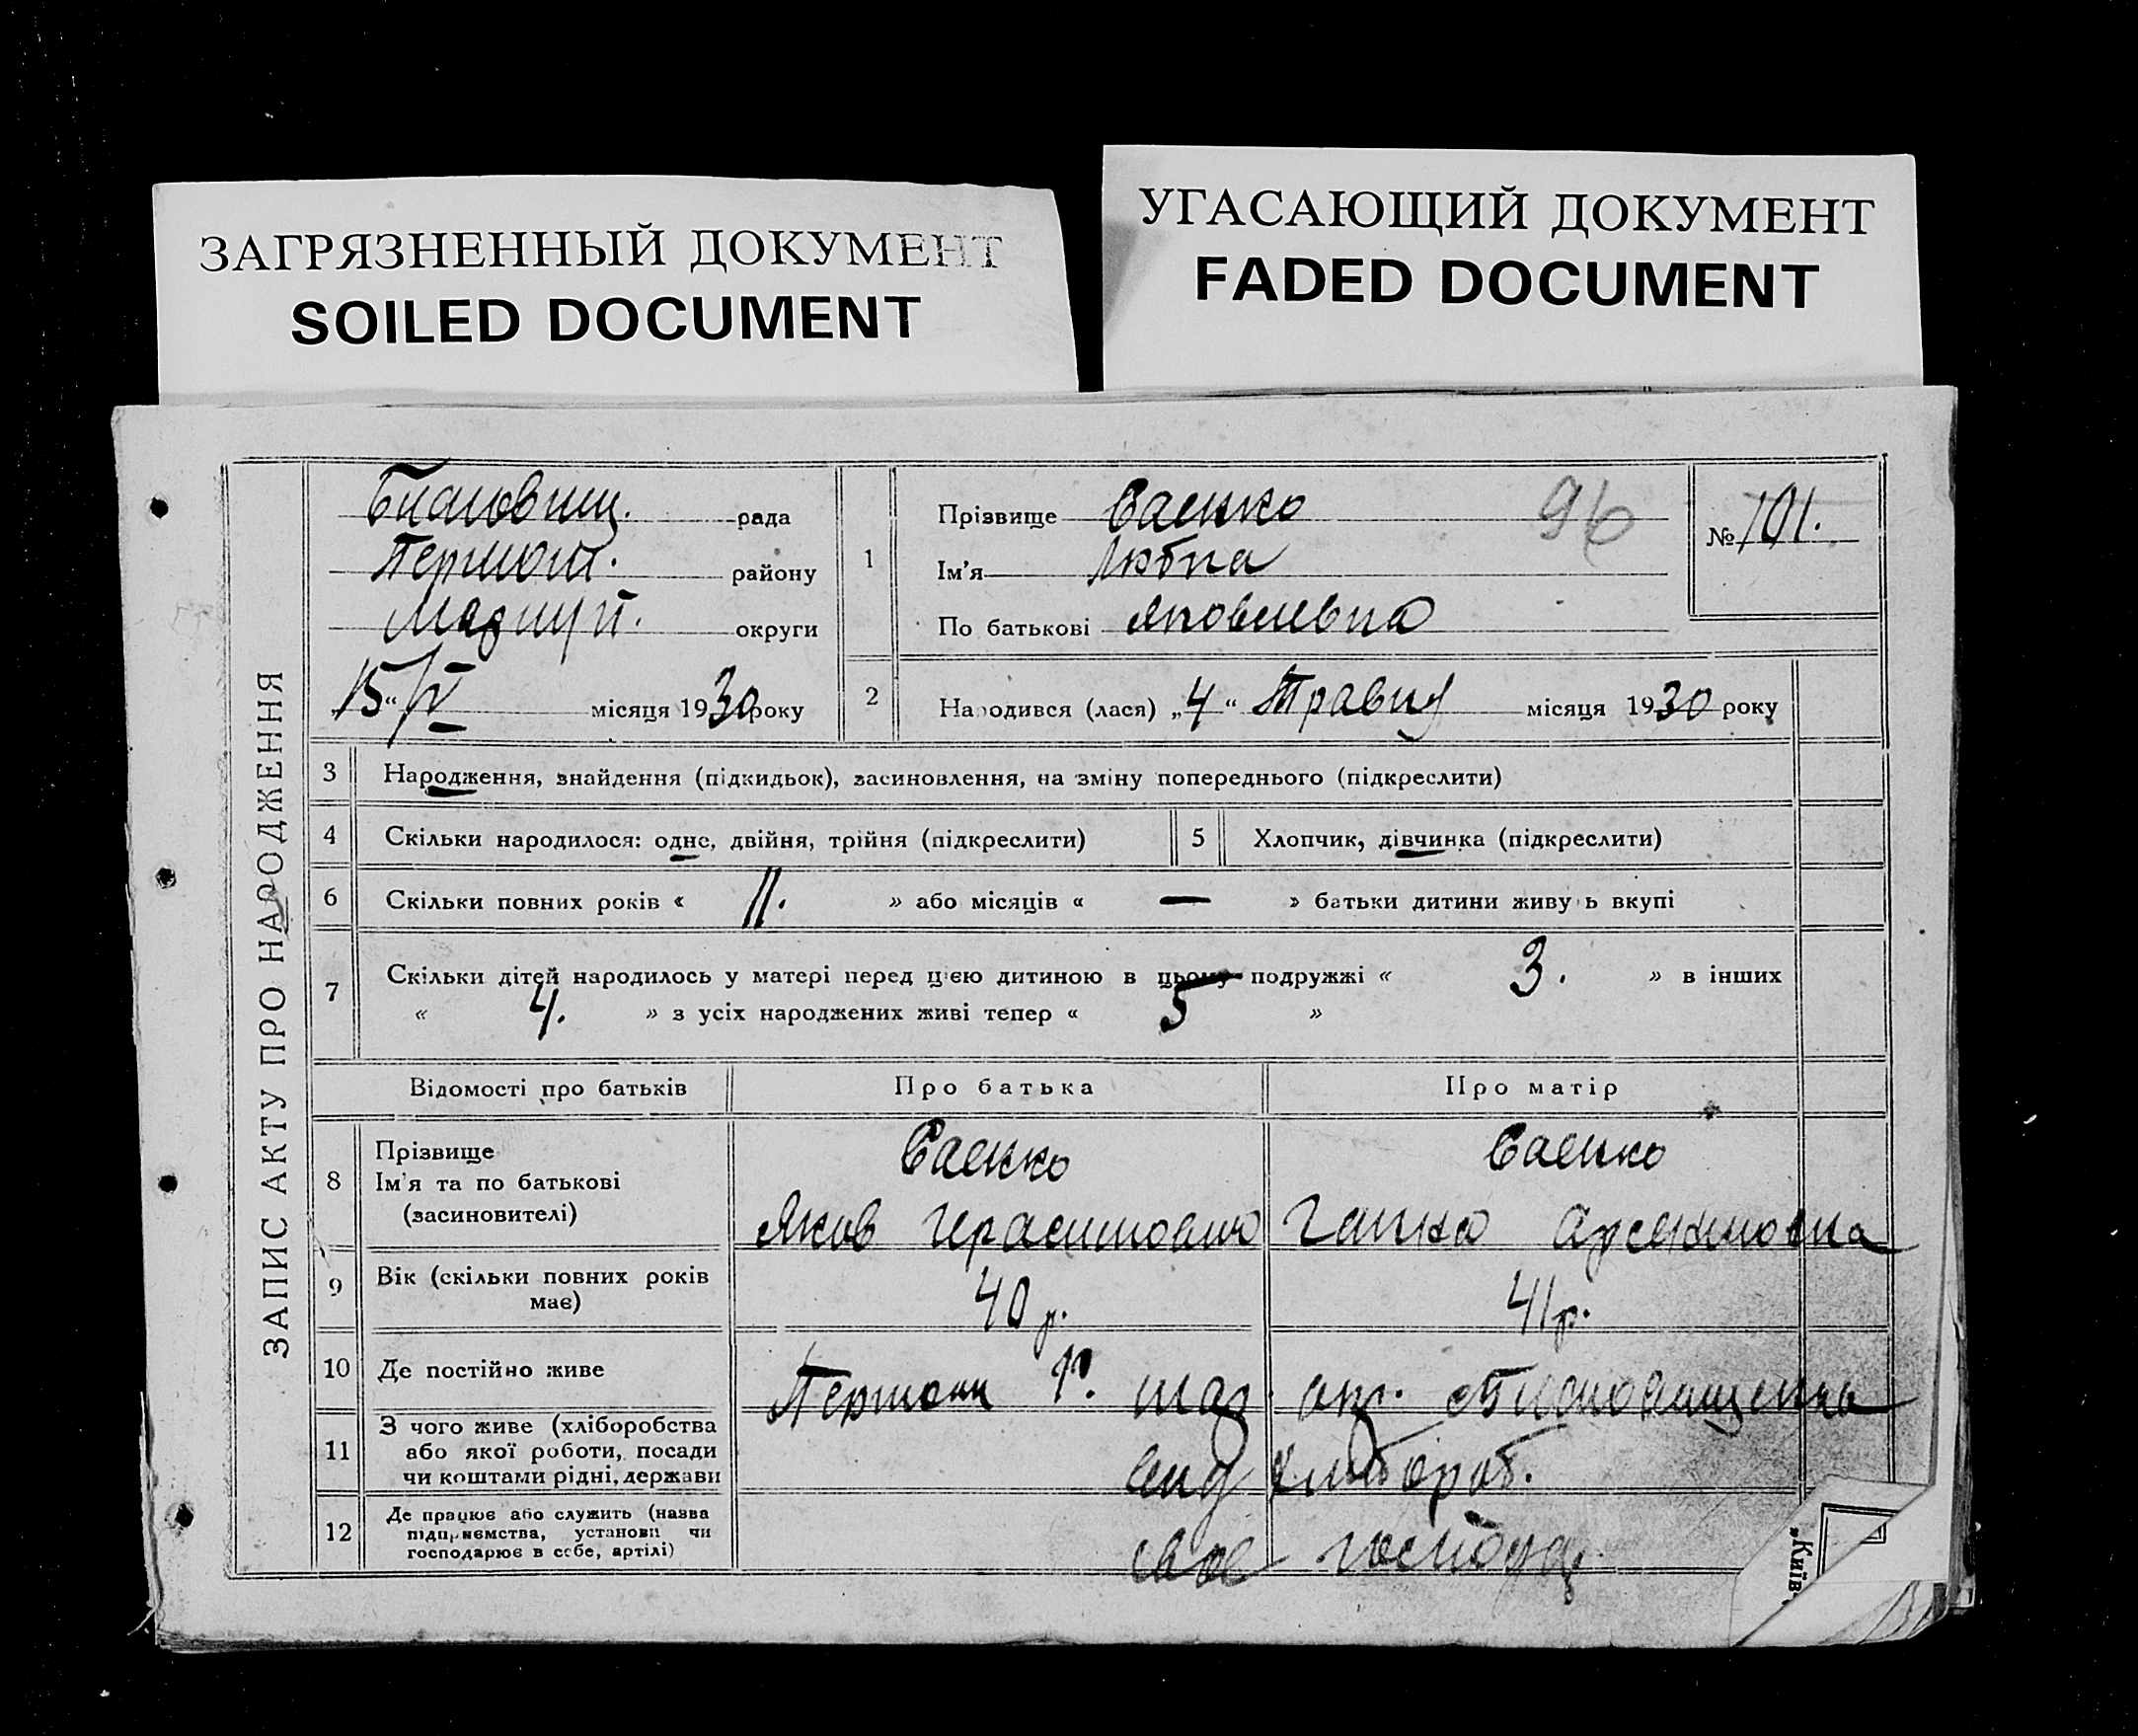 ЗАГРЯЗНЕННЫЙ ДОКУМЕНТ
SOILED DOCUMENT
УГАСАЮЩИЙ ДОКУМЕНТ
FADED DOCUMENT
ЗАПИС АКТУ ПРО НАРОДЖЕННЯ
рада
району
округи
15 " V місяця 1930 року
1
Прізвище Саенко
96
Ім'я Любка
По батькові Яковлевна
№ 101.
2
Народився (лася) „4“ Травня місяця 1930 року
3 Народження, знайдення (підкидьок), засиновлення, на зміну попереднього (підкреслити)
4 Скільки народилося: одне, двійня, трійня (підкреслити)
5 Хлопчик, дівчинка (підкреслити)
6 Скільки повних років « 11. » або місяців « — » батьки дитини живуть вкупі
7 Скільки дітей народилось у матері перед цією дитиною в цьому подружжі « 3. » в інших
« 4. » з усіх народжених живі тепер « 5 »
Відомості про батьків Про батька Про матір
8 Прізвище
Ім'я та по батькові
(засиновителі)
Саенко Саенко
Яков Герасимович Ганна
9 Вік (скільки повних років
має)
40 р. 41 р.
10 Де постійно живе
11 З чого живе (хліборобства
або якої роботи, посади
чи коштами рідні, держави
хлібороб.
12 Де працює або служить (назва
підприємства, установи чи
господарює в себе, артілі)
своє господ.
„Київ